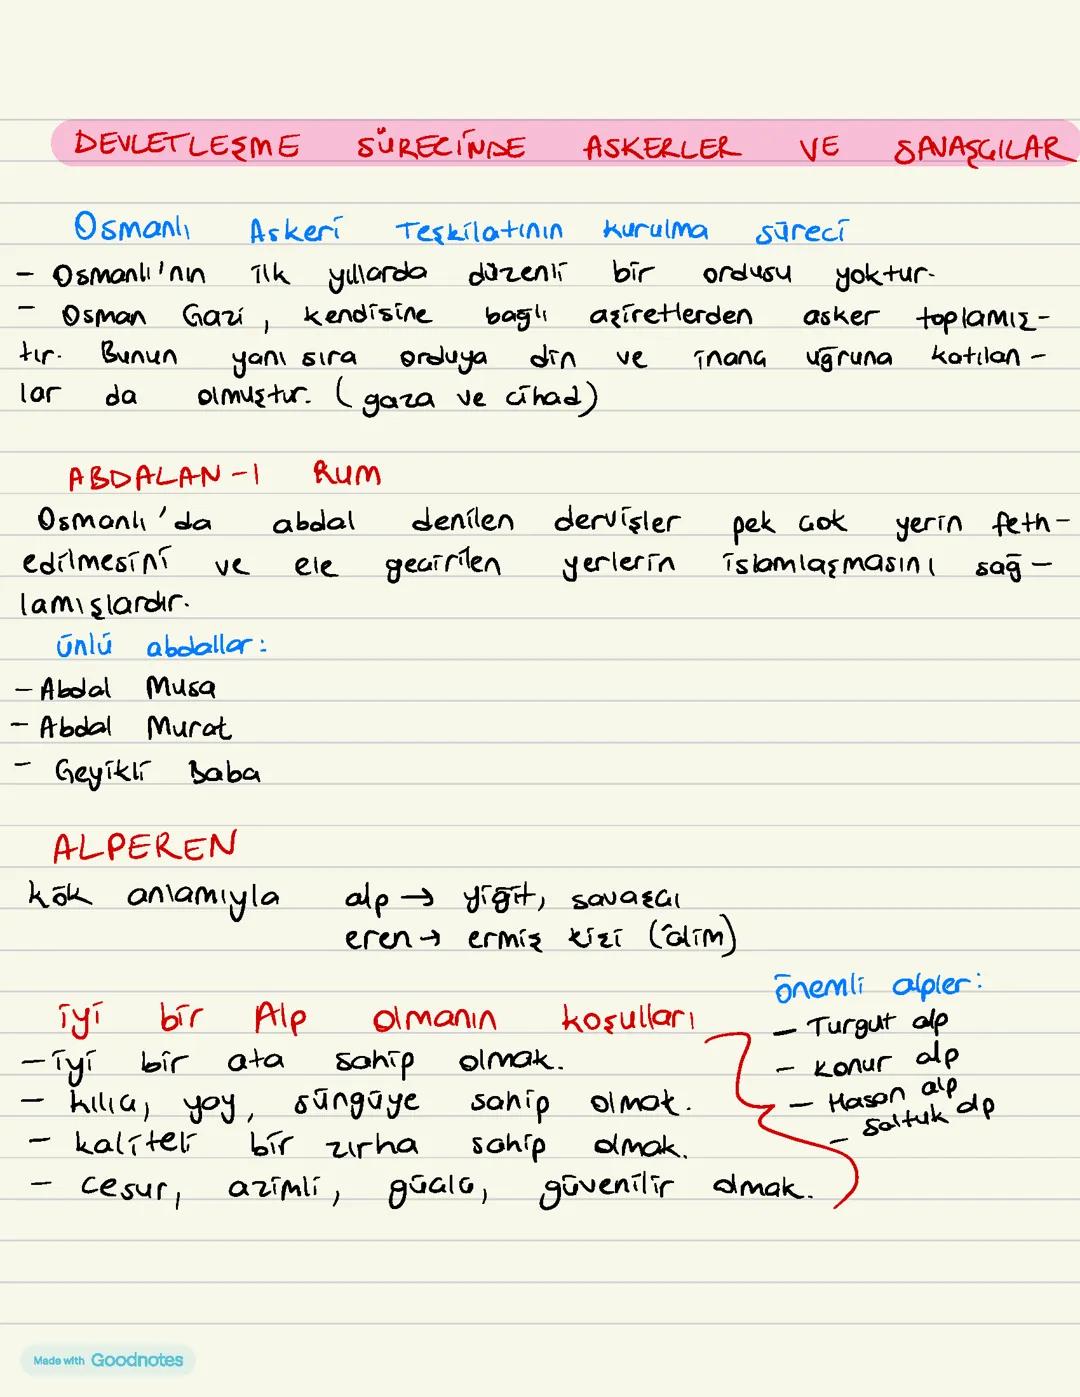 DEVLETLEŞME SÜRECİNDE ASKERLER VE SAVAŞÇILAR
Osmanlı Askeri Teşkilatının kurulma süreci
- Osmanlı'nın ilk yıllarda düzenli bir ordusu yoktur.
- Osman Gazi, kendisine bağlı aşiretlerden asker toplamış-
tır. Bunun yanı sıra orduya din ve inanç uğruna katılan-
lar da olmuştur. (gaza ve cihad)
ABDALAN-I RUM
Osmanlı'da abdal denilen dervişler pek çok yerin feth-
edilmesini ve ele geçirilen yerlerin islamlaşmasını sağ-
lamışlardır.
ünlü abdallar:
- Abdal Musa
- Abdal Murat
- Geyikli Baba
ALPEREN
kök anlamıyla alp → yiğit, savaşçı
eren → ermiş kişi (âlim)
önemli alpler:
- Turgut alp
- Konur alp
- Hasan alp
- Saltuk alp
iyi bir Alp olmanın koşulları
- iyi bir ata sahip olmak.
- kılıç, yay, süngüye sahip olmak.
- kaliteli bir zırha sahip olmak.
- cesur, azimli, güçlü, güvenilir olmak.
Made with Goodnotes